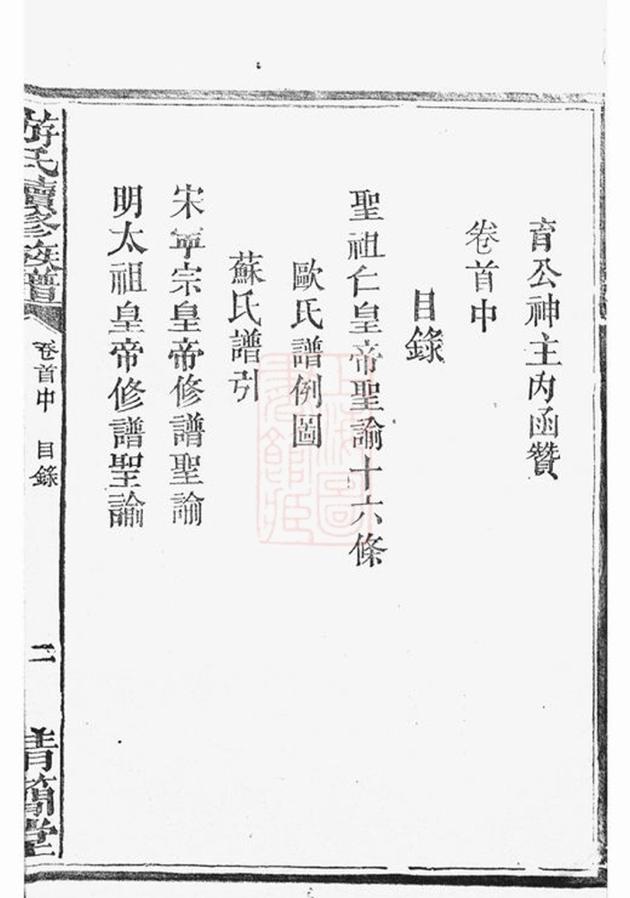 育公神主內函贊
卷首中
目錄
聖祖仁皇帝聖諭十六條
歐氏譜例圖
蘇氏譜引
宋寧宗皇帝修譜聖諭
明太祖皇帝修譜聖諭
游氏續修族譜
卷首中 目錄
二
青簡堂
上海圖書館藏